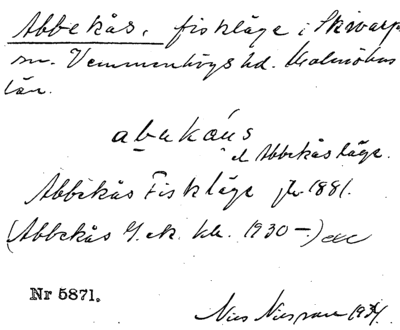 Abbekås, fiskläge i Skivarps
sn. Vemmenhögs hd. Malmöhus
län.
abakåus
el. Abbekås läge.
Abbekås Fiskläge jb. 1881.
(Abbekås G. ek. kk. 1930 –)
Nr 5871.
Nils 1934